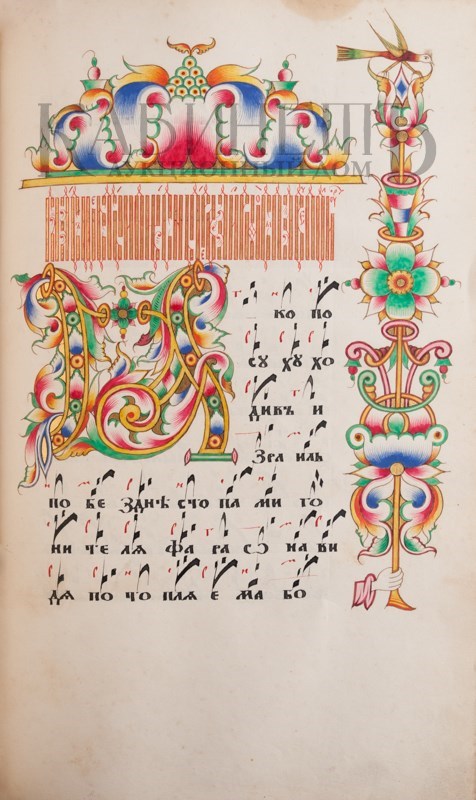 КАБИНЕТЪ
АУКЦИОННЫЙ ДОМ
Ꙗ ко по
су ху хо
дивъ и
Зра иль
по бе зднѣ сто па ми го
ни те лѧ фа ра ѡ на ви
дѧ по то плѧ е ма бо